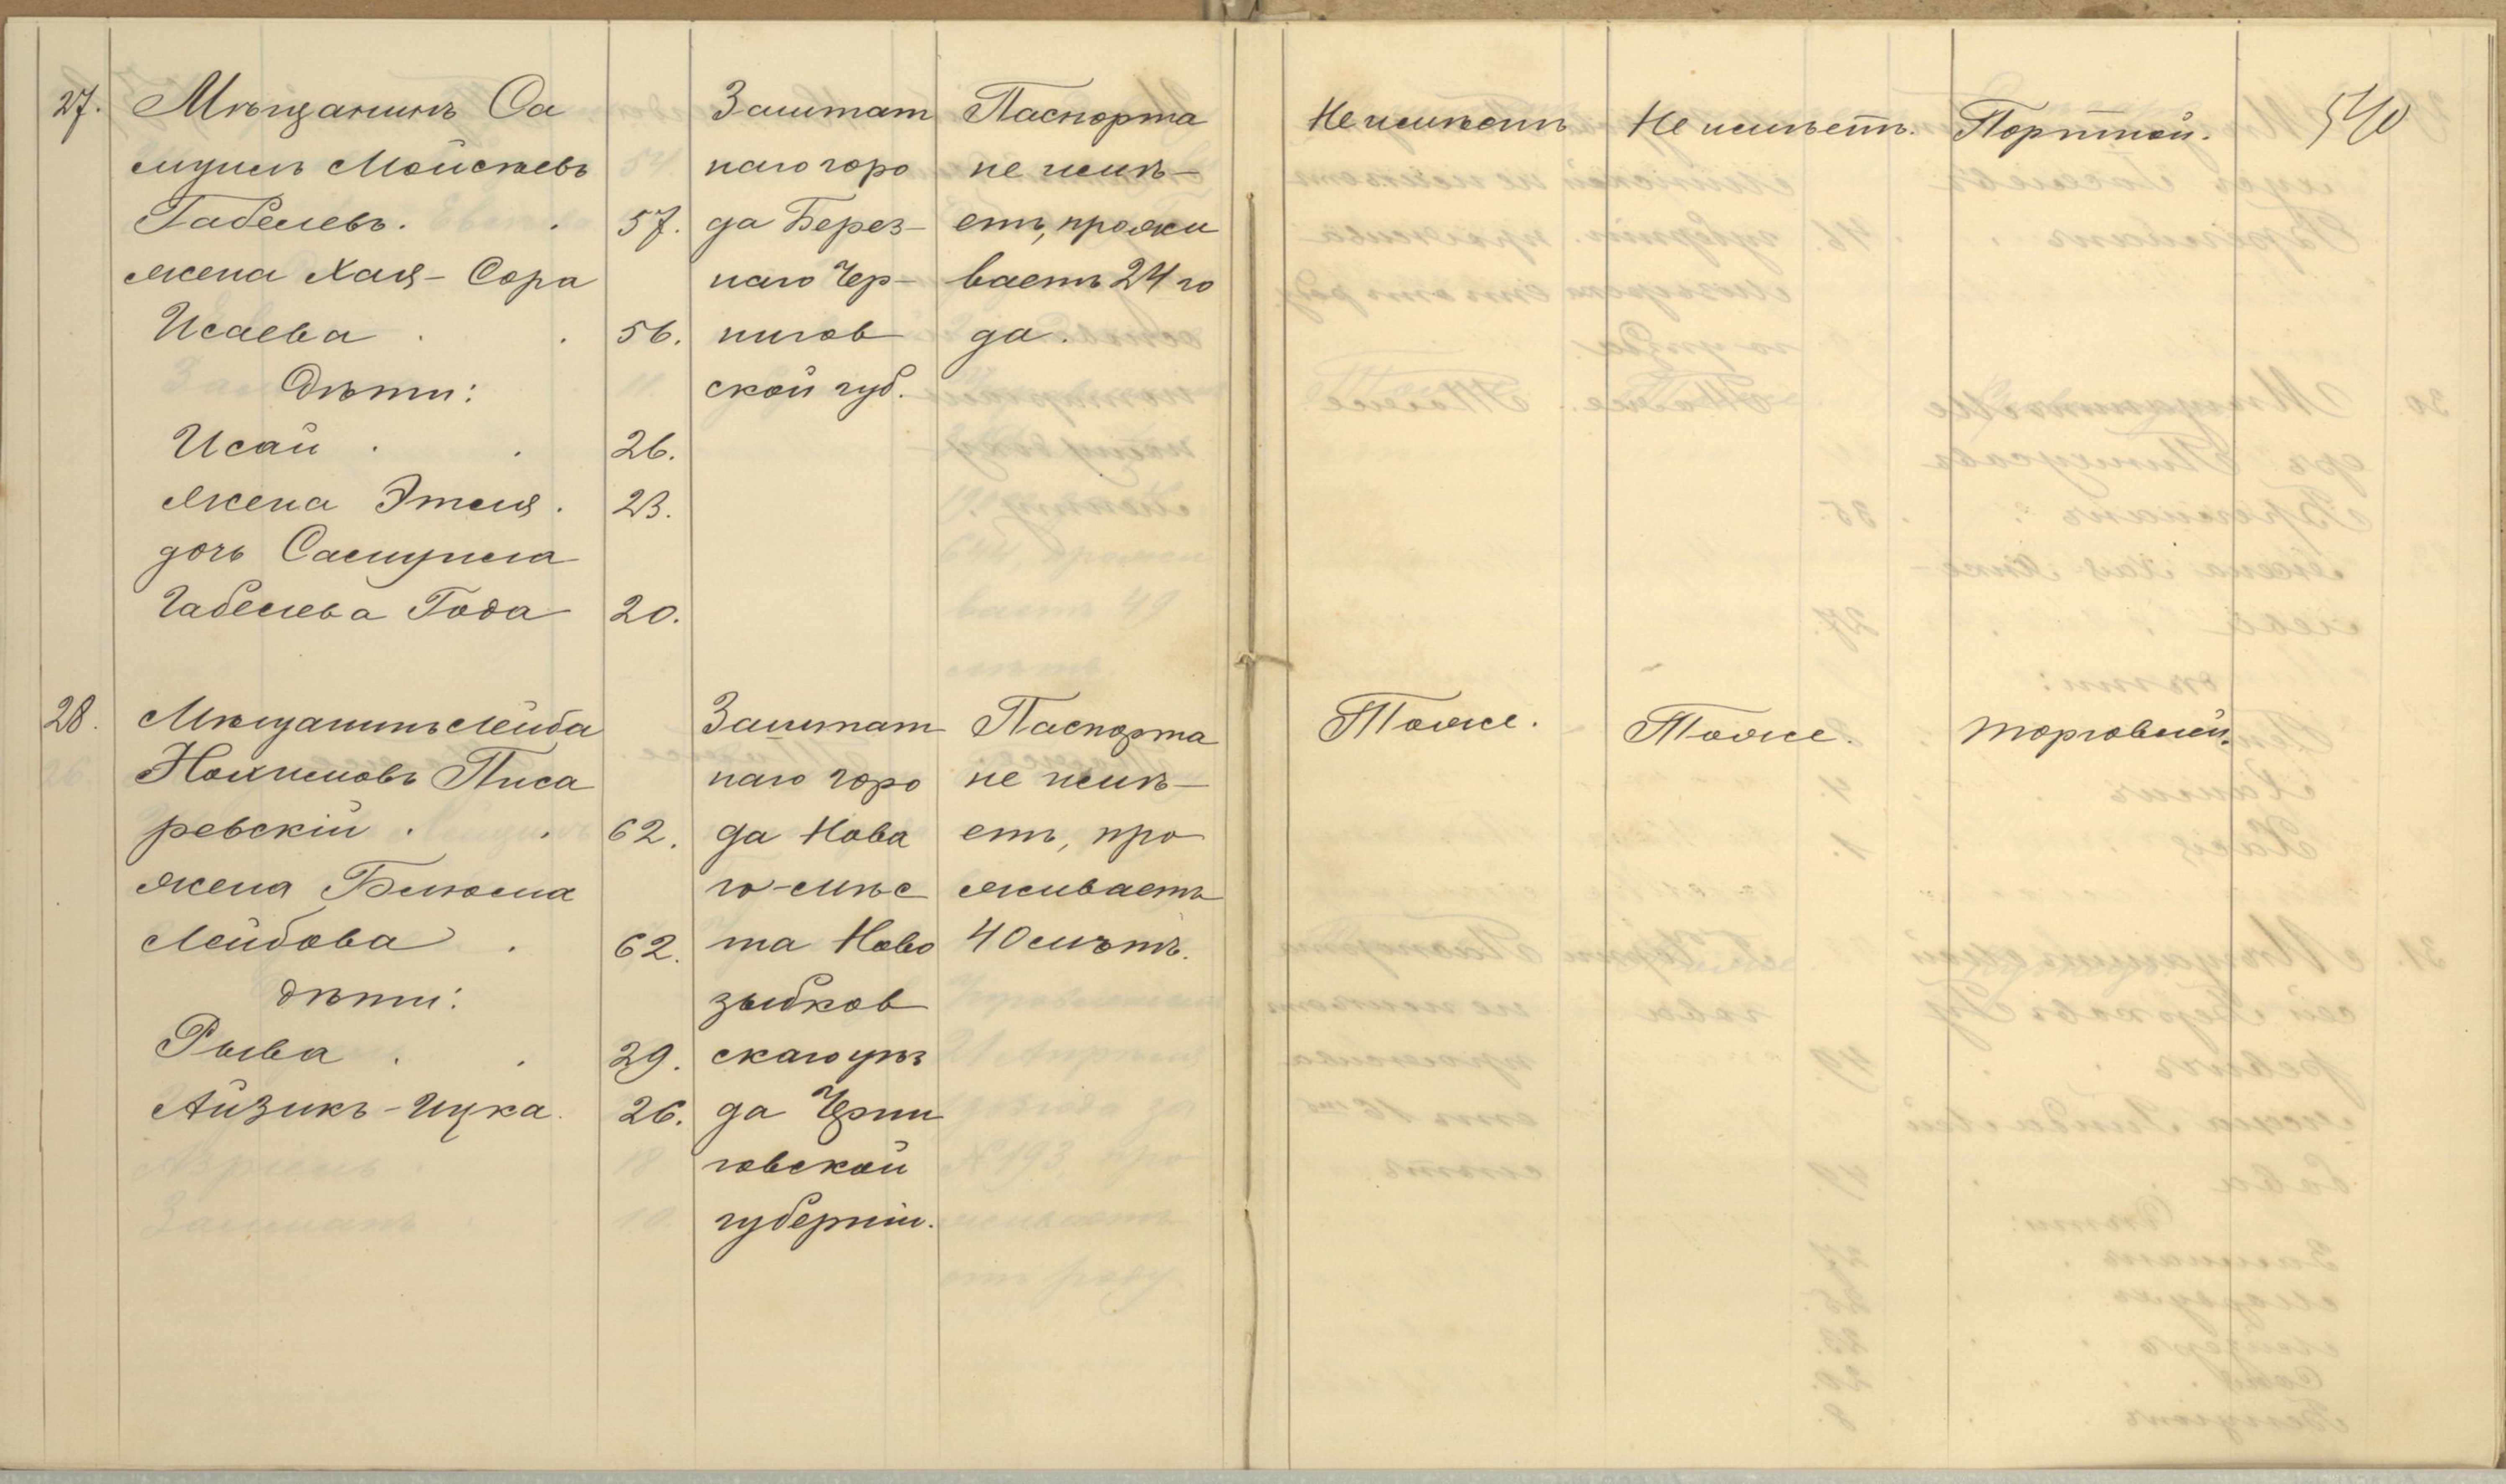 27. Мѣщанинъ Са
муилъ Мойсѣевъ
Габелевъ. . 57.
жена Хая-Сора
Исаева . . 56.
Дѣти:
Исай . . 26.
жена Этля. 23.
дочь Самуила
Габелева Года 20.
Заштат
наго горо
да Берез-
наго Чер-
нигов
ской губ.
Паспорта
не имѣ-
етъ, прожи
ваетъ 24 го
да.
Не имѣетъ
Не имѣетъ.
Портной.
540
28. Мѣщанинъ Лейба
Нохимовъ Писа
ревскій . . 62.
жена Блюма
Лейбова . 62.
дѣти:
Рыва . . 29.
Айзикъ-Ицка. 26.
Заштат
наго горо
да Нова
го-мѣс
та Ново
зыбков
скаго уѣз
да Черни
говской
губерніи.
Паспорта
не имѣ-
етъ, про
живаетъ
40 лѣтъ.
Тоже.
Тоже.
торговлей.